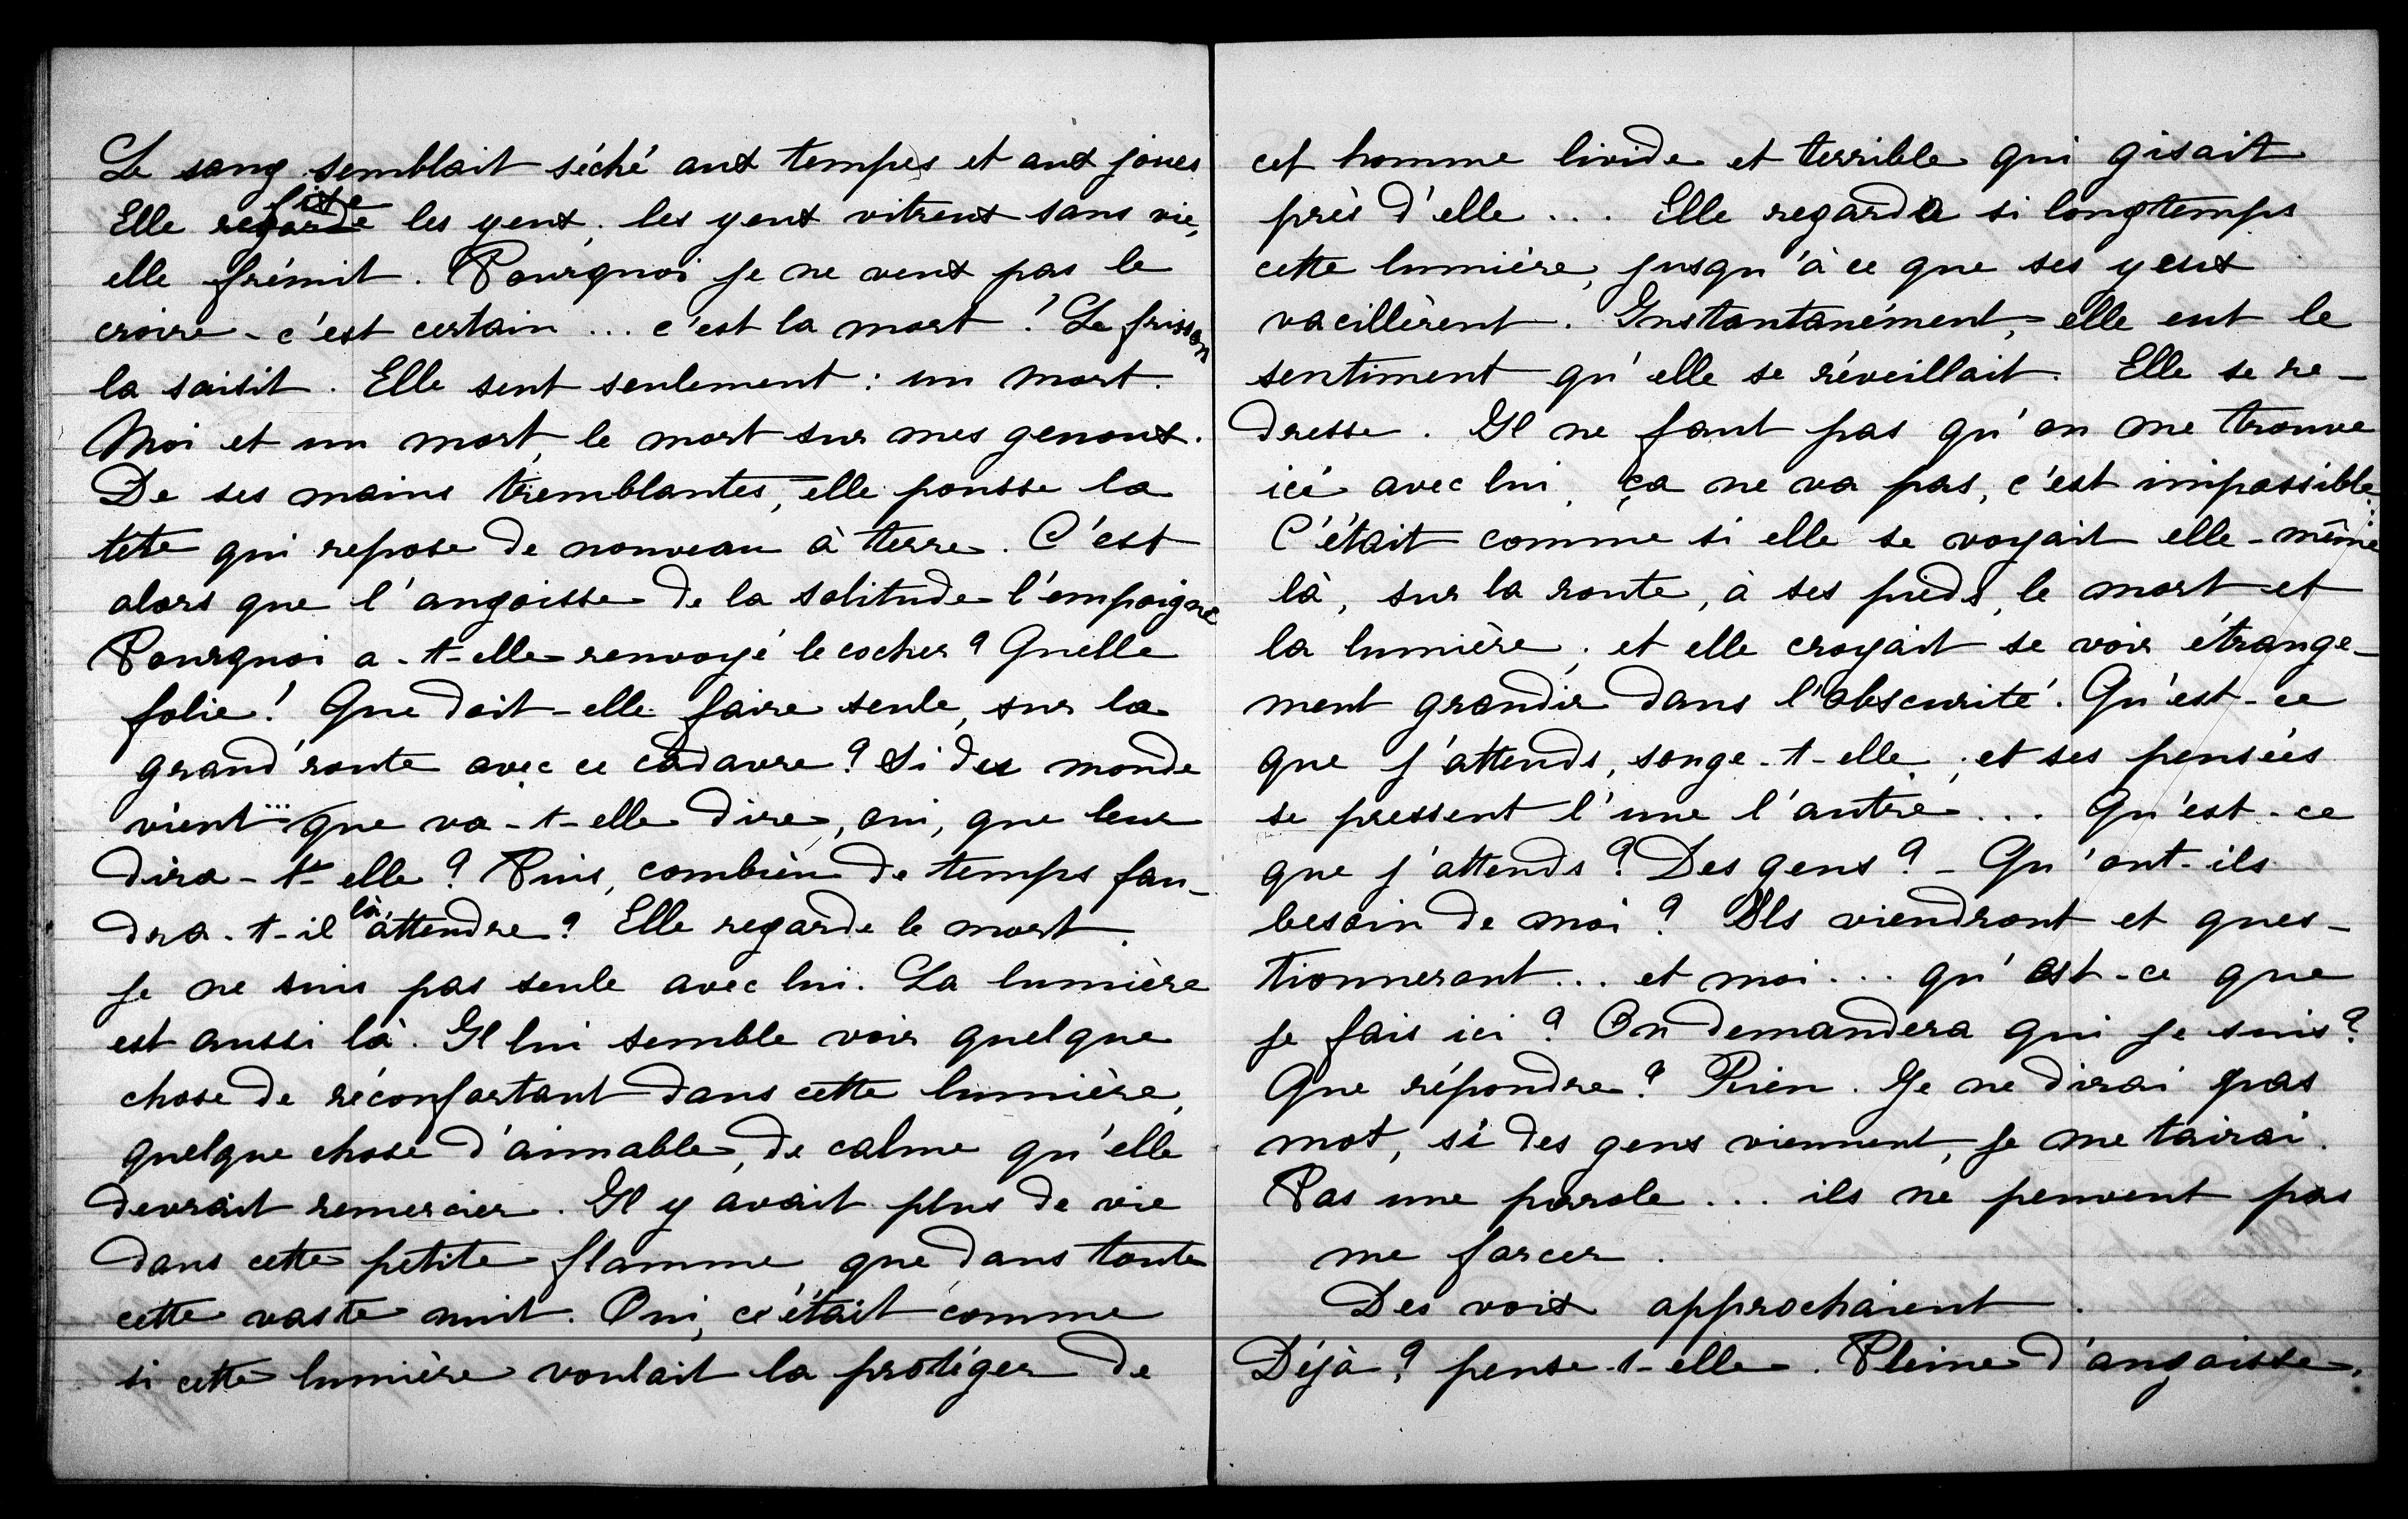 Le sang semblait séché aux tempes et aux joues
fixe
Elle regarde les yeux, les yeux vitreux sans vie,
elle frémit. Pourquoi je ne veux pas le
croire - c'est certain ... c'est la mort ! Le frisson
la saisit. Elle sent seulement : un mort.
Moi et un mort, le mort sur mes genoux.
De ses mains tremblantes, elle pousse la
tête qui repose de nouveau à terre. C'est
alors que l'angoisse de la solitude l'empoigne
Pourquoi a-t-elle renvoyé le cocher ? Quelle
folie ! Que doit-elle faire seule, sur la
grand'route avec ce cadavre ? Si du monde
vient ... que va-t-elle dire, oui, que leur
dira-t-elle ? Puis, combien de temps fau-
dra-t-il là attendre ? Elle regarde le mort.
Je ne suis pas seule avec lui. La lumière
est aussi là. Il lui semble voir quelque
chose de réconfortant dans cette lumière,
quelque chose d'aimable, de calme qu'elle
devrait remercier. Il y avait plus de vie
dans cette petite flamme que dans toute
cette vaste nuit. Oui, c'était comme
si cette lumière voulait la protéger de
cet homme livide et terrible qui gisait
près d'elle ... Elle regarda si longtemps
cette lumière, jusqu'à ce que ses yeux
vacillèrent. Instantanément, elle eut le
sentiment qu'elle se réveillait. Elle se re-
dresse. Il ne faut pas qu'on me trouve
ici avec lui, ça ne va pas, c'est impossible.
C'était comme si elle se voyait elle-même
là, sur la route, à ses pieds, le mort et
la lumière ; et elle croyait se voir étrange-
ment grandir dans l'obscurité. Qu'est-ce
que j'attends, songe-t-elle ; et ses pensées
se pressent l'une l'autre ... Qu'est-ce
que j'attends ? Des gens ? - Qu'ont-ils
besoin de moi ? Ils viendront et ques-
tionneront ... et moi ... qu'est-ce que
je fais ici ? On demandera qui je suis ?
Que répondre ? Rien. Je ne dirai pas
mot, si des gens viennent, je me tairai.
Pas une parole ... ils ne peuvent pas
me forcer.
Des voix approchaient.
Déjà ? pense-t-elle. Pleine d'angoisse,